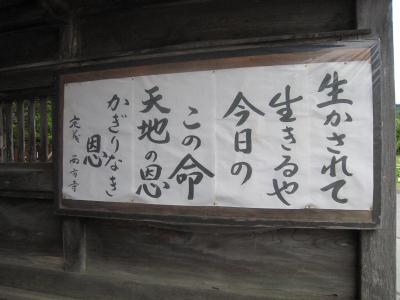 生かされて
生きるや
今日の
この命
天地の恩
かぎりなき
恩
定義 西方寺